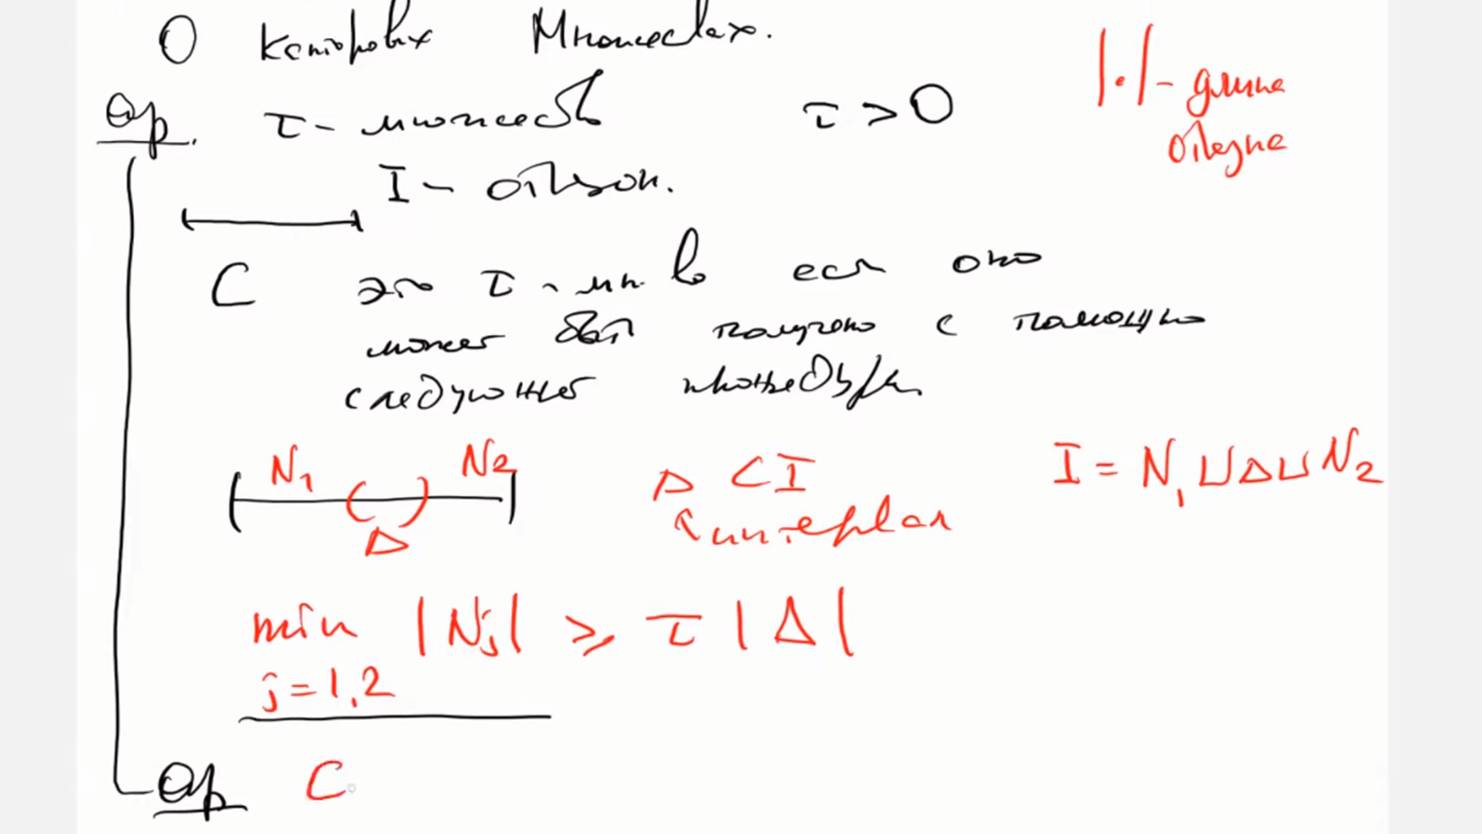 О Канторовых Множествах.
Опр. τ - множества τ > 0
|·| - длина
отрезка
I - отрезок.
C это τ - мн-во если оно
может быть получено с помощью
следующей процедуры
N₁ N₂
Δ
Δ ⊂ I
интервал
I = N₁ ⊔ Δ ⊔ N₂
min |Nj| ⩾ τ |Δ|
j = 1,2
Опр C